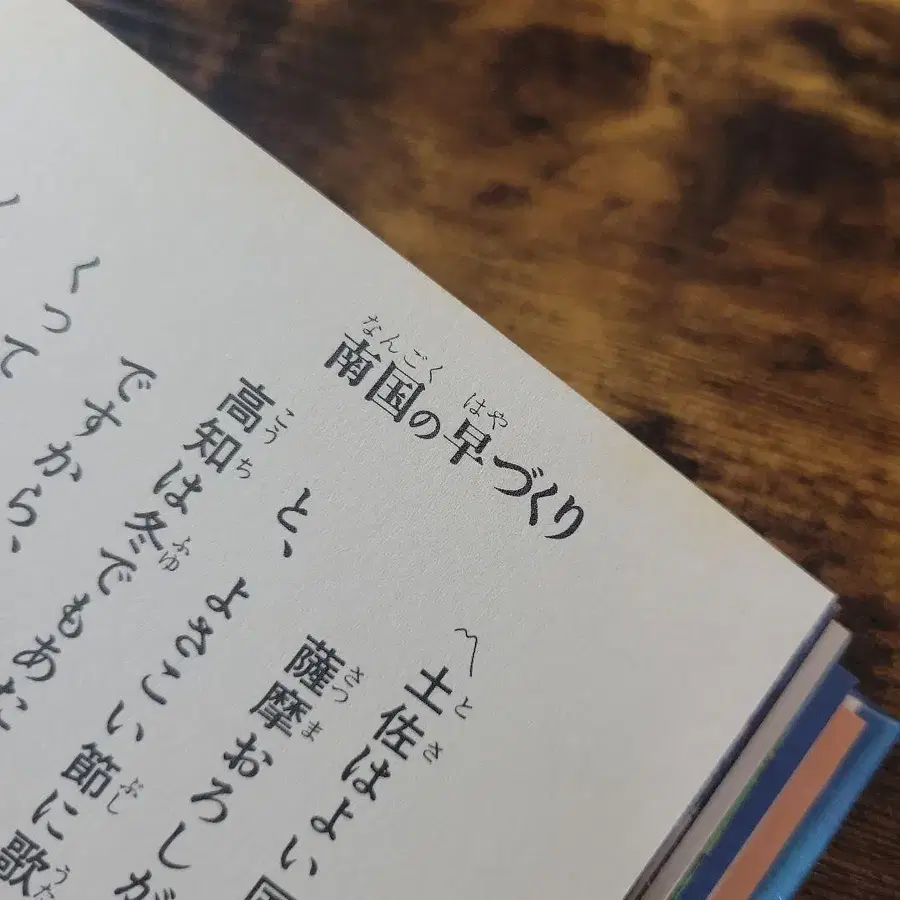 南国の早づくり
〽土佐はよい
薩摩おろしが
と、よさこい節に歌
高知は冬でもあた
ですから、
くって